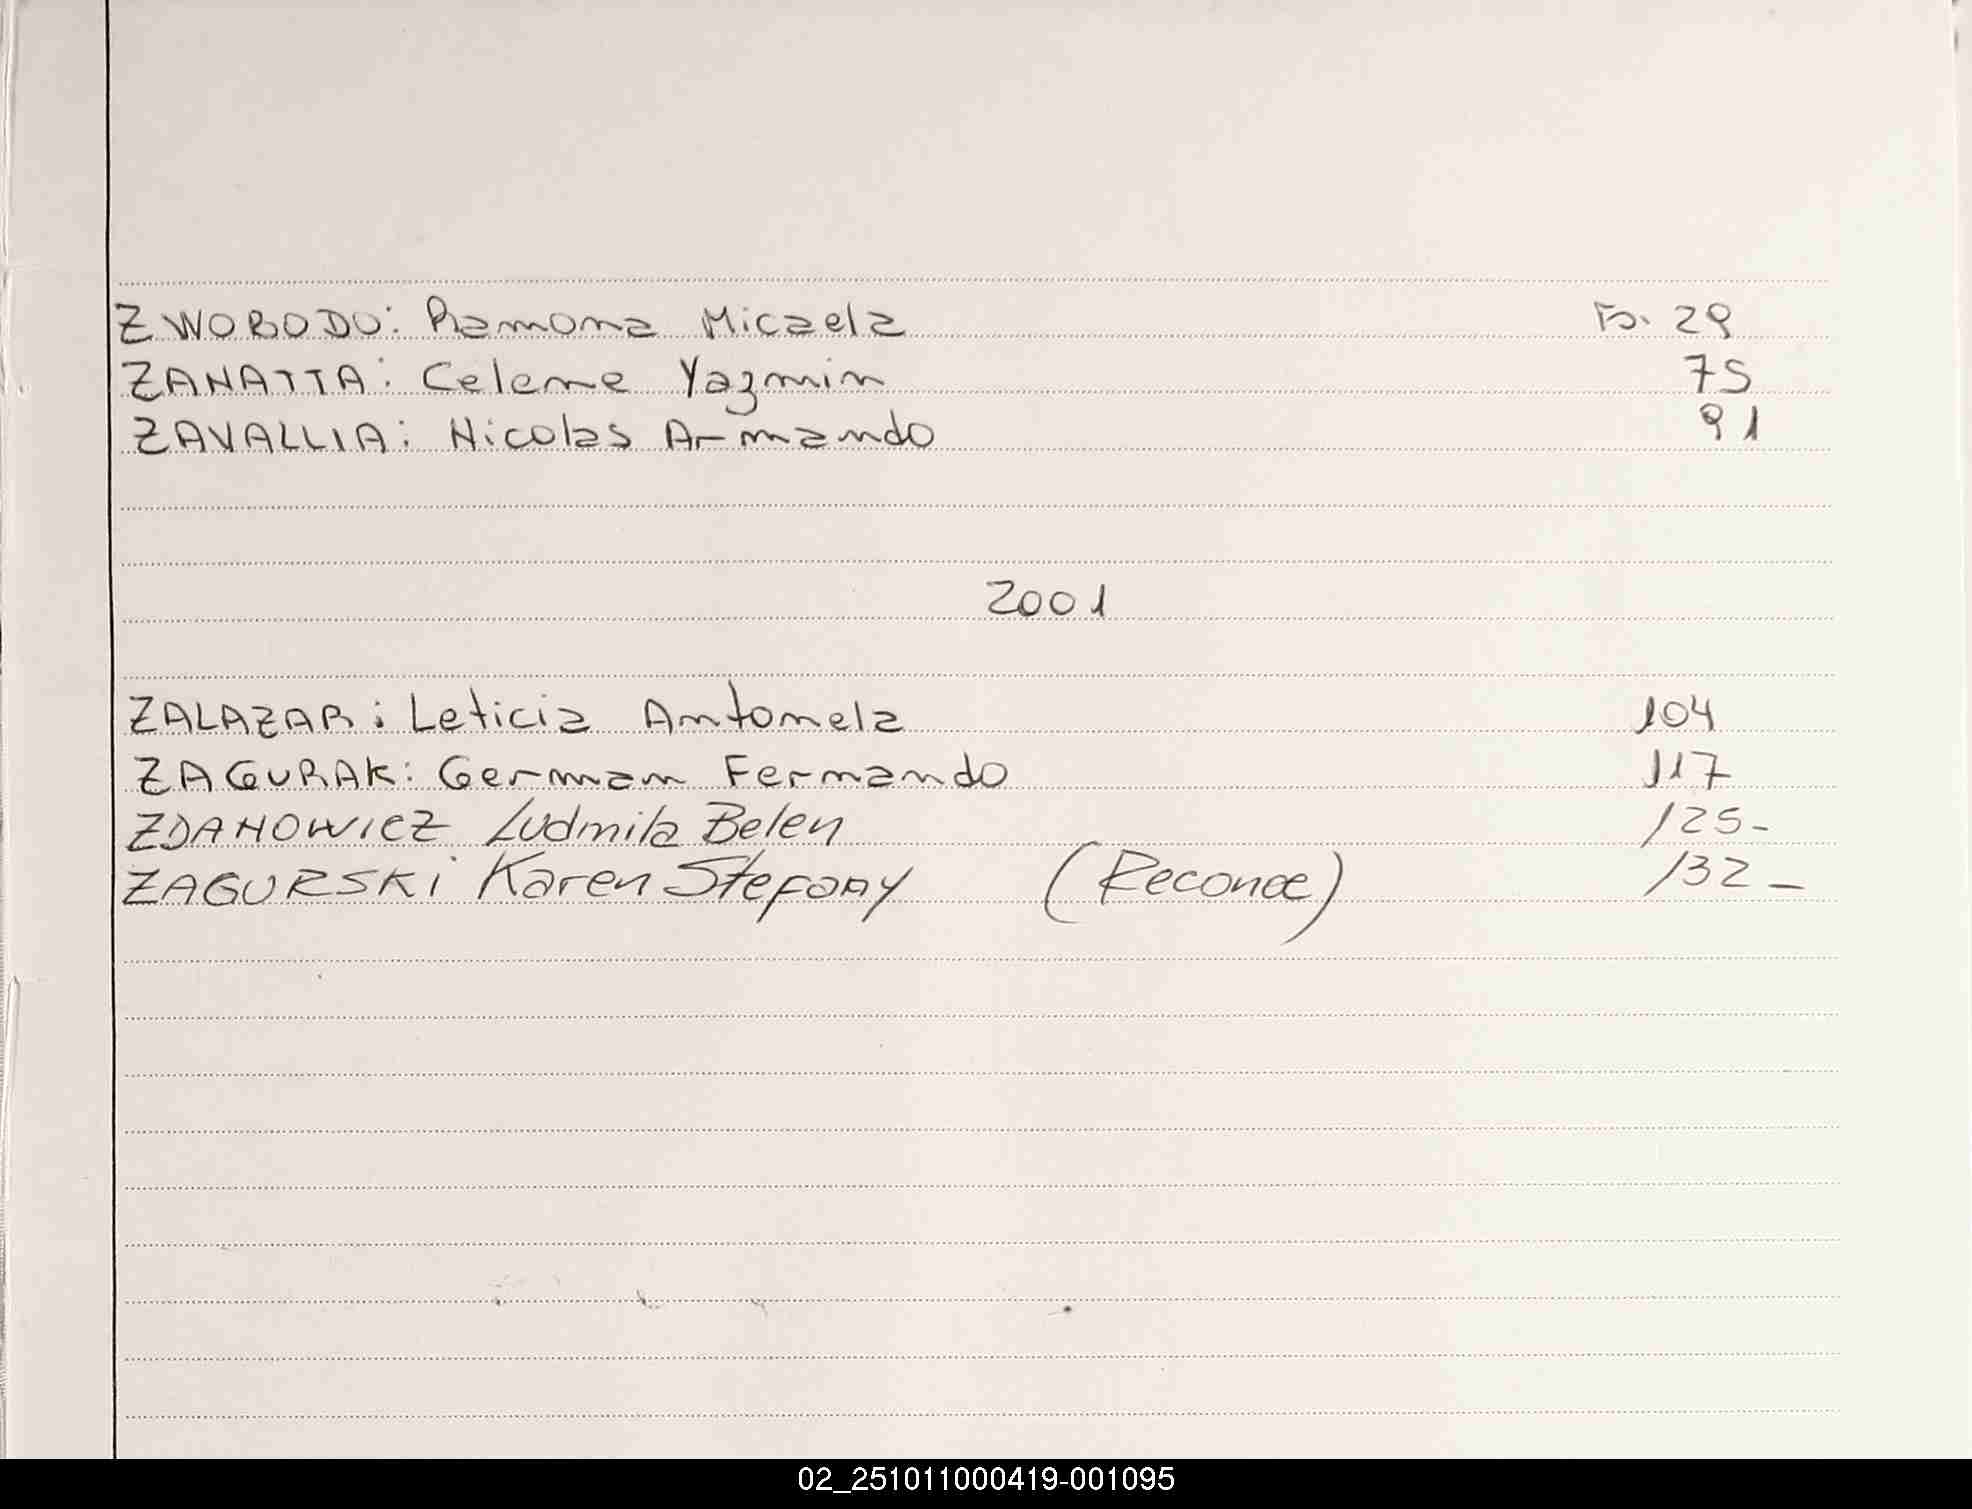 ZWOBODO: Ramona Micaela Fo. 29
ZANATTA: Celene Yazmin 75
ZAVALLIA: Nicolas Armando 91
2001
ZALAZAR: Leticia Antonela 104
ZAGURAK: German Fernando 117
ZDANOWIEZ Ludmila Belen 125-
ZAGURSKi Karen Stefany (Reconoce) 132-
02_251011000419-001095